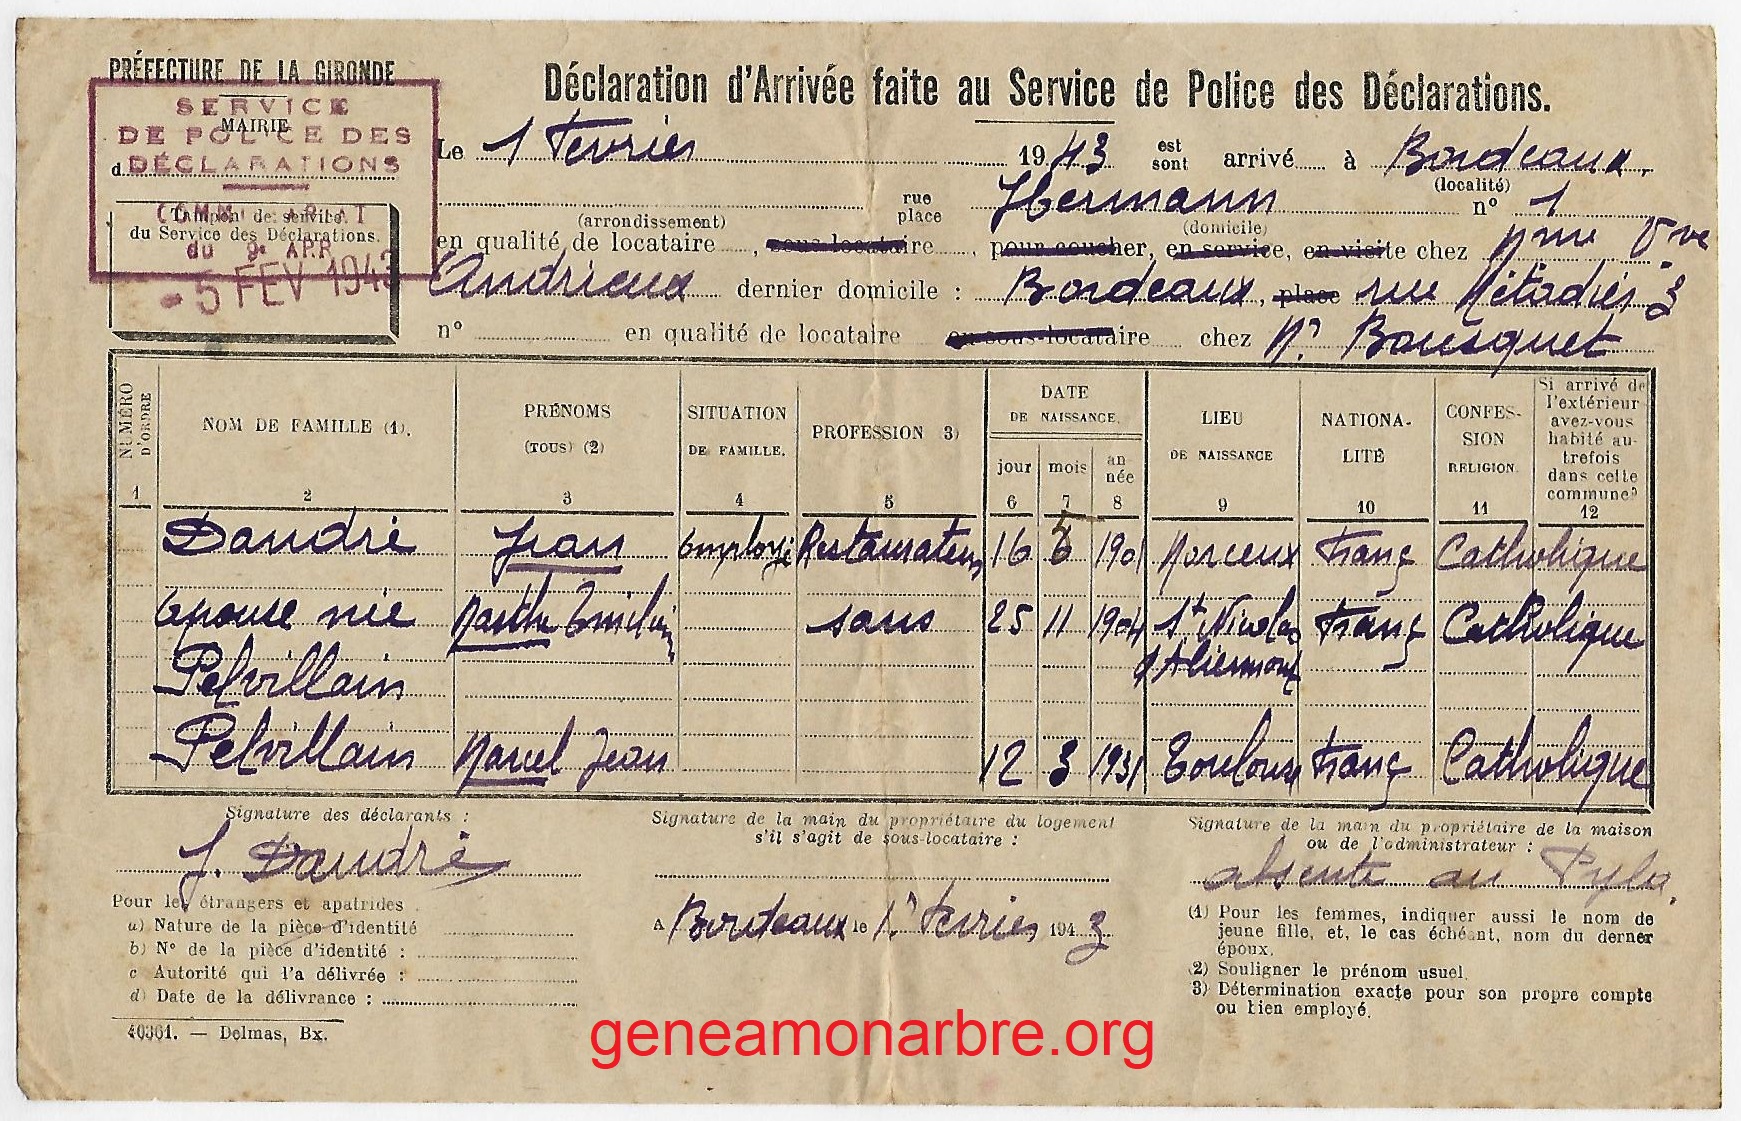 PRÉFECTURE DE LA GIRONDE
MAIRIE
d
SERVICE
DE POLICE DES
DÉCLARATIONS
Tampon de service
du Service des Déclarations.
du 9e ARR
- 5 FEV 1943
Déclaration d'Arrivée faite au Service de Police des Déclarations.
Le 1 Fevrier 1943 est sont arrivé à Bordeaux.
(arrondissement) rue place Hermann (domicile) (localité) n° 1
en qualité de locataire, sous-locataire, pour coucher, en service, en visite chez Mme Vve
Andrieux dernier domicile : Bordeaux, place rue Métadier 3
n° en qualité de locataire en sous-locataire chez Mr. Bousquet
NUMÉRO D'ORDRE
NOM DE FAMILLE (1).
PRÉNOMS (TOUS) (2)
SITUATION DE FAMILLE.
PROFESSION 3)
DATE DE NAISSANCE.
jour mois année
LIEU DE NAISSANCE
NATIONALITÉ
CONFESSION RELIGION.
Si arrivé de l'extérieur avez-vous habité autrefois dans cette commune?
1 2 3 4 5 6 7 8 9 10 11 12
Daudré Jean employé Restaurateur 16 6 1901 Morceux Franç Catholique
épouse née Marthe Emilie sans 25 11 1904 St Nicolas Franç Catholique
Pelvillain d'Aliermont
Pelvillain Marcel Jean 12 3 1931 Toulouse Franç Catholique
Signature des déclarants :
J. Daudré
Signature de la main du propriétaire du logement
s'il s'agit de sous-locataire :
Signature de la main du propriétaire de la maison
ou de l'administrateur :
absente au Pyla.
Pour les étrangers et apatrides
a) Nature de la pièce d'identité
b) N° de la pièce d'identité :
c Autorité qui l'a délivrée :
d) Date de la délivrance :
40361. — Delmas, Bx.
A Bordeaux le 1r Fevrier 1943
(1) Pour les femmes, indiquer aussi le nom de
jeune fille, et, le cas échéant, nom du derner
époux.
(2) Souligner le prénom usuel.
3) Détermination exacte pour son propre compte
ou bien employé.
geneamonarbre.org